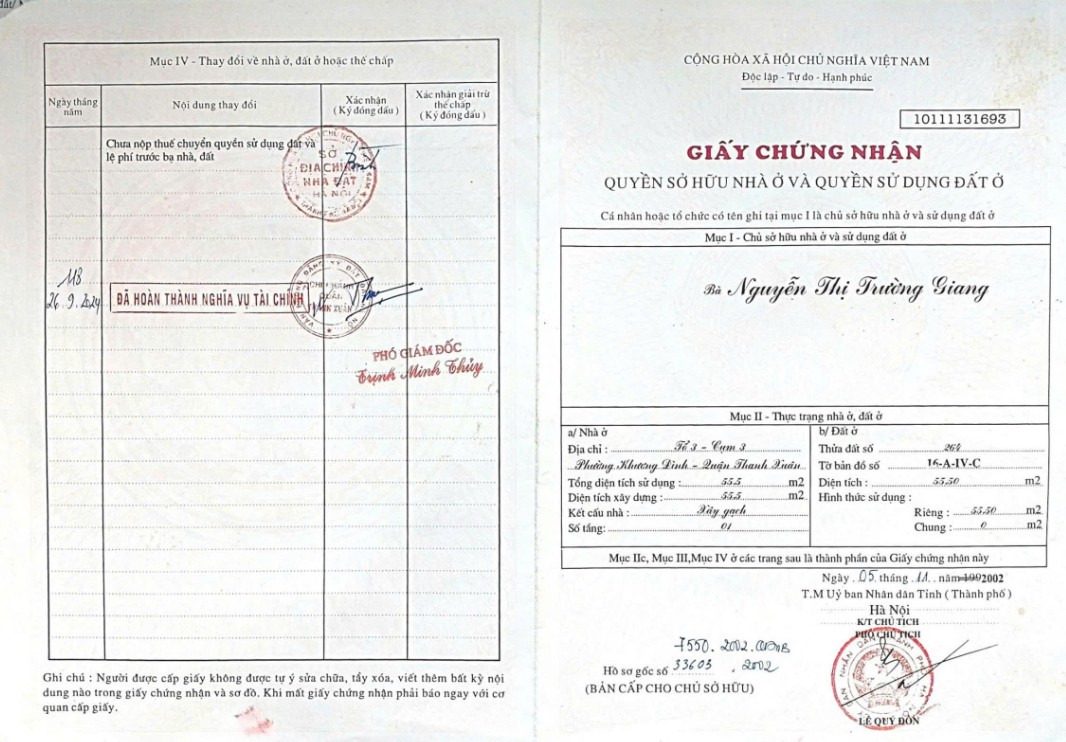 Mục IV - Thay đổi về nhà ở, đất ở hoặc thế chấp
Ngày tháng năm
Nội dung thay đổi
Xác nhận
(Ký đóng dấu)
Xác nhận giải trừ
thế chấp
(Ký đóng dấu)
Chưa nộp thuế chuyển quyền sử dụng đất và
lệ phí trước bạ nhà, đất
SỞ
ĐỊA CHÍNH
NHÀ ĐẤT
HÀ NỘI
118
26.9.2024
ĐÃ HOÀN THÀNH NGHĨA VỤ TÀI CHÍNH
PHÓ GIÁM ĐỐC
Trịnh Minh Thủy
Ghi chú : Người được cấp giấy không được tự ý sửa chữa, tẩy xóa, viết thêm bất kỳ nội
dung nào trong giấy chứng nhận và sơ đồ. Khi mất giấy chứng nhận phải báo ngay với cơ
quan cấp giấy.
CỘNG HÒA XÃ HỘI CHỦ NGHĨA VIỆT NAM
Độc lập - Tự do - Hạnh phúc
10111131693
GIẤY CHỨNG NHẬN
QUYỀN SỞ HỮU NHÀ Ở VÀ QUYỀN SỬ DỤNG ĐẤT Ở
Cá nhân hoặc tổ chức có tên ghi tại mục I là chủ sở hữu nhà ở và sử dụng đất ở
Mục I - Chủ sở hữu nhà ở và sử dụng đất ở
Bà Nguyễn Thị Trường Giang
Mục II - Thực trạng nhà ở, đất ở
a/ Nhà ở
Địa chỉ : Tổ 3 - Cụm 3
Phường Khương Đình - Quận Thanh Xuân
Tổng diện tích sử dụng : 55.5 m2
Diện tích xây dựng : 55.5 m2
Kết cấu nhà : Xây gạch
Số tầng: 01
b/ Đất ở
Thửa đất số 264
Tờ bản đồ số 16-A-IV-C
Diện tích : 55.50 m2
Hình thức sử dụng :
Riêng : 55.50 m2
Chung : 0 m2
Mục IIc, Mục III,Mục IV ở các trang sau là thành phần của Giấy chứng nhận này
Ngày 05 tháng 11 năm 199 2002
T.M Uỷ ban Nhân dân Tỉnh ( Thành phố )
Hà Nội
K/T CHỦ TỊCH
PHÓ CHỦ TỊCH
LÊ QUÝ ĐÔN
7550.2002
Hồ sơ gốc số 33603.2002
(BẢN CẤP CHO CHỦ SỞ HỮU)